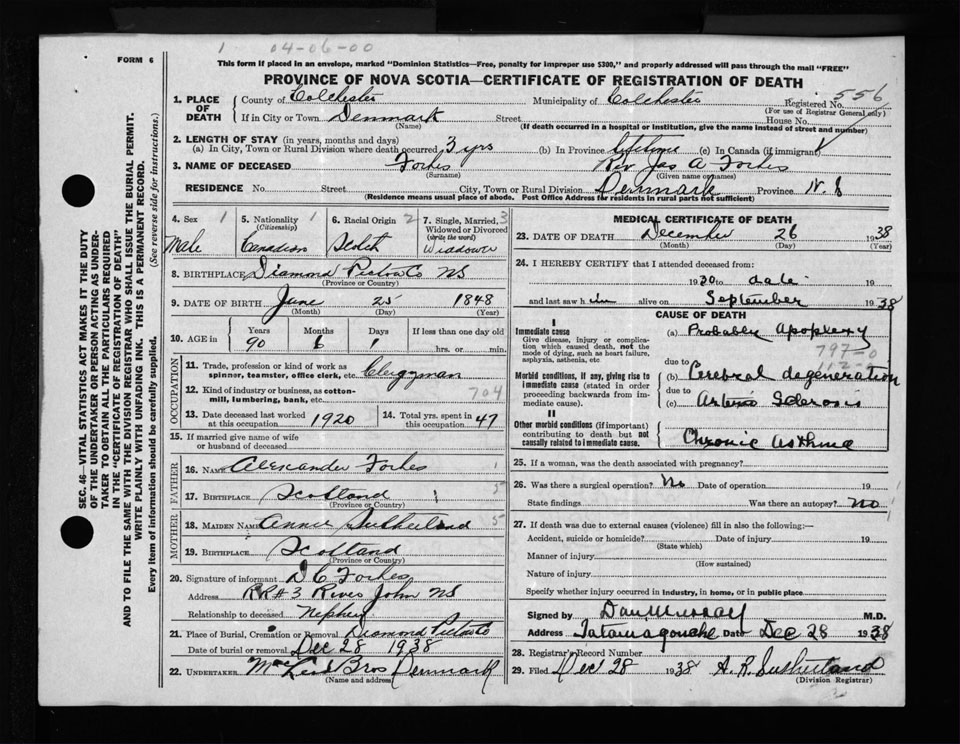 1 04-06-00
FORM 6
This form if placed in an envelope, marked "Dominion Statistics—Free, penalty for improper use $300," and properly addressed will pass through the mail "FREE"
PROVINCE OF NOVA SCOTIA—CERTIFICATE OF REGISTRATION OF DEATH
SEC. 46—VITAL STATISTICS ACT MAKES IT THE DUTY
OF THE UNDERTAKER OR PERSON ACTING AS UNDER-
TAKER TO OBTAIN ALL THE PARTICULARS REQUIRED
IN THE "CERTIFICATE OF REGISTRATION OF DEATH"
AND TO FILE THE SAME WITH THE DIVISION REGISTRAR WHO SHALL ISSUE THE BURIAL PERMIT.
WRITE PLAINLY WITH UNFADING INK. THIS IS A PERMANENT RECORD.
Every item of information should be carefully supplied. (See reverse side for instructions.)
1. PLACE OF DEATH County of Colchester Municipality of Colchester Registered No. 556
(For use of Registrar General only)
If in City or Town Denmark Street House No.
(Name) (If death occurred in a hospital or institution, give the name instead of street and number)
2. LENGTH OF STAY (in years, months and days)
(a) In City, Town or Rural Division where death occurred 3 yrs (b) In Province lifetime (c) In Canada (if immigrant)
3. NAME OF DECEASED Forbes Rev Jas A Forbes
(Surname) (Given name or names)
RESIDENCE No. Street City, Town or Rural Division Denmark Province N.S
(Residence means usual place of abode. Post Office Address for residents in rural parts not sufficient)
4. Sex 1 5. Nationality 1 6. Racial Origin 2 7. Single, Married, 3
(Citizenship) Widowed or Divorced
(write the word)
Male Canadian Scotch Widower
8. BIRTHPLACE Diamond Pictou Co NS
(Province or Country)
9. DATE OF BIRTH June 25 1848
(Month) (Day) (Year)
10. AGE in Years Months Days If less than one day old
90 6 1 hrs. or min.
OCCUPATION
11. Trade, profession or kind of work as
spinner, teamster, office clerk, etc. Clergyman
12. Kind of industry or business, as cotton-
mill, lumbering, bank, etc. 704
13. Date deceased last worked
at this occupation 1920 14. Total yrs. spent in
this occupation 47
15. If married give name of wife
or husband of deceased
FATHER
16. NAME Alexander Forbes 1
17. Birthplace Scotland 5
(Province or Country)
MOTHER
18. MAIDEN NAME Annie Sutherland 5
19. Birthplace Scotland
(Province or Country)
20. Signature of informant D C Forbes
Address RR#3 River John NS
Relationship to deceased Nephew
21. Place of Burial, Cremation or Removal Diamond Pictou Co
Date of burial or removal Dec 28 1938
22. UNDERTAKER Bros Denmark
(Name and address)
MEDICAL CERTIFICATE OF DEATH
23. DATE OF DEATH December 26 1938
(Month) (Day) (Year)
24. I HEREBY CERTIFY that I attended deceased from:
1920 to date 19
and last saw him alive on September 1938
CAUSE OF DEATH
I
Immediate cause (a) Probably Apoplexy
Give disease, injury or complica-
tion which caused death, not the
mode of dying, such as heart failure,
asphyxia, asthenia, etc
797-0
due to
Morbid conditions, if any, giving rise to
immediate cause (stated in order
proceeding backwards from im-
mediate cause).
(b) Cerebral degeneration
due to
(c) Arterio Sclerosis
II
Other morbid conditions (if important)
contributing to death but not
causally related to immediate cause.
Chronic Asthma
25. If a woman, was the death associated with pregnancy?
26. Was there a surgical operation? No Date of operation 19
State findings Was there an autopsy? No
27. If death was due to external causes (violence) fill in also the following:—
Accident, suicide or homicide? Date of injury 19
(State which)
Manner of injury
(How sustained)
Nature of injury
Specify whether injury occurred in industry, in home, or in public place
Signed by Dan Murray M.D.
Address Tatamagouche Date Dec 28 1938
28. Registrar's Record Number
29. Filed Dec 28 1938 A. R. Sutherland
(Division Registrar)